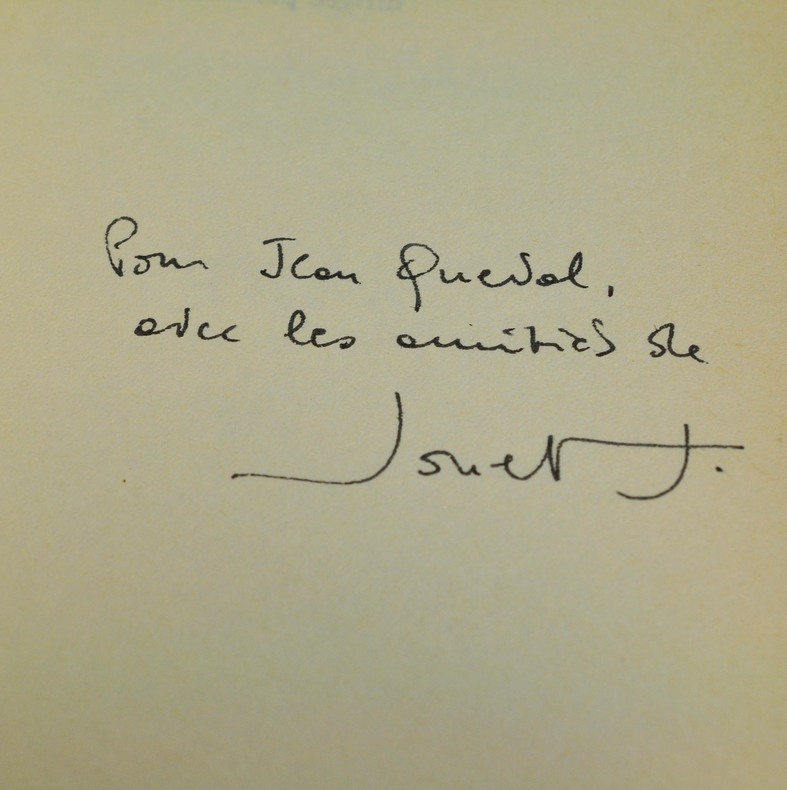 Pour Jean Queval,
avec les amitiés de
Jouet J.